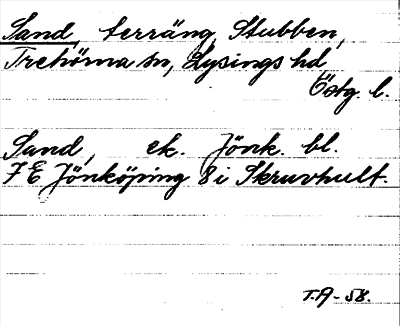 Sand, terräng, Stubben,
Trehörna sn, Lysings hd
Östg. l.
Sand, ek. Jönk. bl.
7 E Jönköping 8 i Skruvhult.
T.A-58.